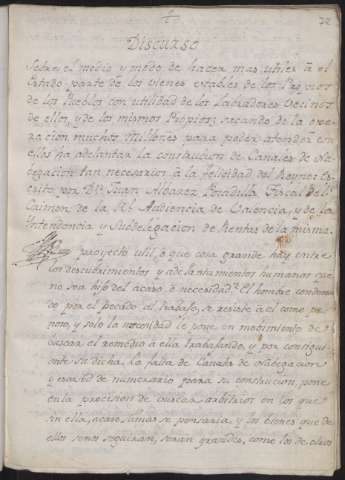 72
Discurso
Sobre el medio y modo de hacer mas utiles à el
Estado parte de los vienes estables de los Propios
de los Pueblos con utilidad de los Labradores Vecinos
de ellos, y de los mismos Propios; sacando de la ope-
racion muchos Millones para poder atender con
ellos ha adelantar la construcion de Canales de Na-
vegacion tan necesarios à la felicidad del Reyno: Es-
crito por Dn. Juan Alvarez Posadilla Fiscal del
Crimen de la Rl. Audiencia de Valencia, y de la
Yntendencia y Subdelegacion de Rentas de la misma.
proyecto util, ò que cosa grande hay entre
los descubrimientos y adelantamientos humanos que
no sea hijo del acaso, ò necesidad? El hombre condena-
do por el pecado al trabajo, se resiste à el como pe-
noso, y solo la necesidad le pone en movimiento de
buscar el remedio à ella trabajando, y por consigui-
ente su dicha. La falta de Canales de Navegacion
y la de numerario para su construcion, pone
en la precision de buscar arbitrios en los que
sin ella, acaso, jamas se pensaria, y los vienes que de
ellos se nos seguiran, seran grandes, como los de